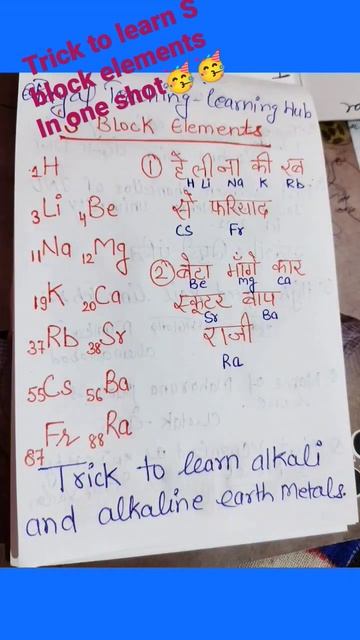 Trick to learn S
block elements
In one shot🥳🥳
Learning-Learning Hub
S Block Elements
1H
3Li 4Be
11Na 12Mg
19K 20Ca
37Rb 38Sr
55Cs 56Ba
87Fr 88Ra
① हे लीना की रब
H Li Na K Rb
से फरियाद
Cs Fr
② बेटा माँगे कार
Be Mg Ca
स्कूटर बाप
Sr Ba
राजी
Ra
Trick to learn alkali
and alkaline earth Metals.